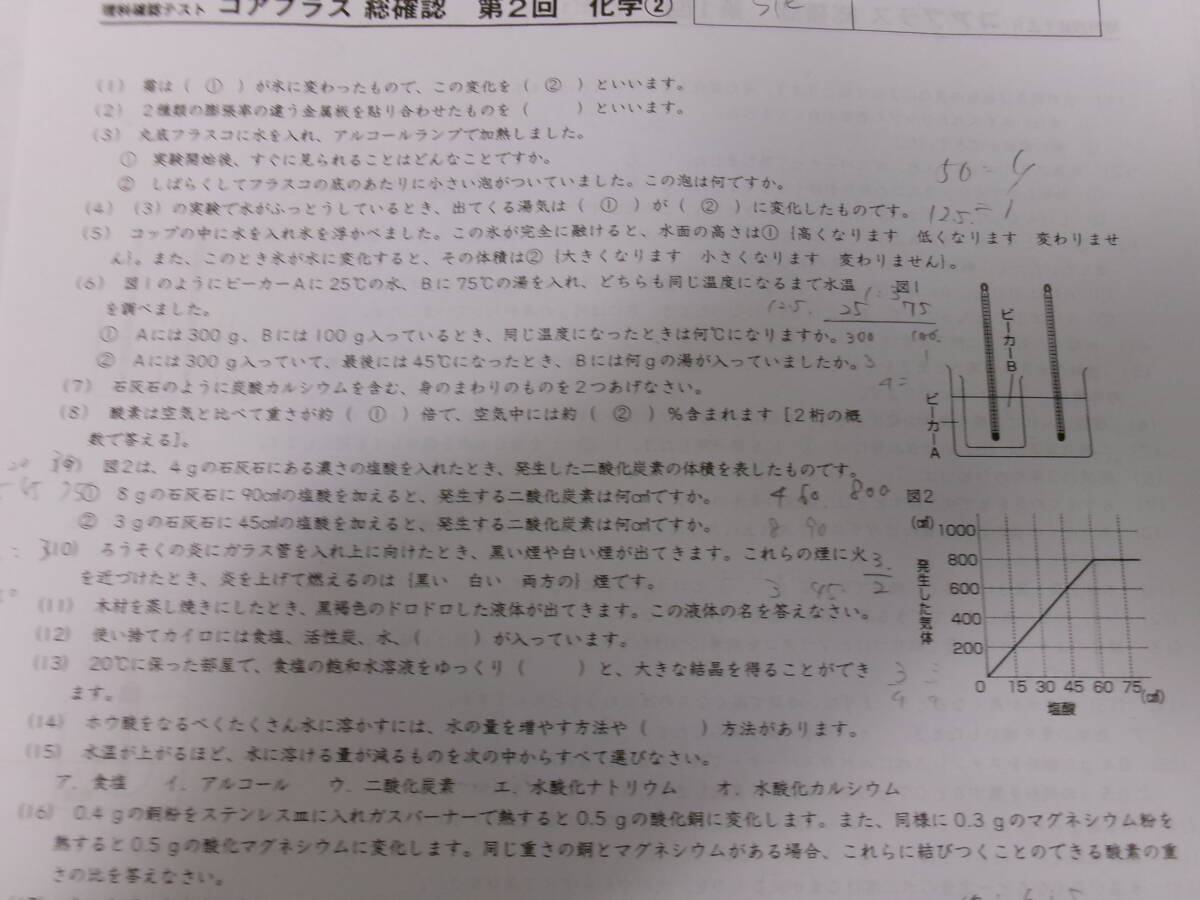 理科確認テスト コアプラス 総確認 第2回 化学②
(1) 霜は( ① )が氷に変わったもので、この変化を( ② )といいます。
(2) 2種類の膨張率の違う金属板を貼り合わせたものを( )といいます。
(3) 丸底フラスコに水を入れ、アルコールランプで加熱しました。
① 実験開始後、すぐに見られることはどんなことですか。
② しばらくしてフラスコの底のあたりに小さい泡がついていました。この泡は何ですか。
50=4
(4) (3)の実験で水がふっとうしているとき、出てくる湯気は( ① )が( ② )に変化したものです。
12.5=1
(5) コップの中に水を入れ氷を浮かべました。この氷が完全に融けると、水面の高さは①{高くなります 低くなります 変わりませ
ん}。また、このとき氷が水に変化すると、その体積は②{大きくなります 小さくなります 変わりません}。
(6) 図1のようにビーカーAに25℃の水、Bに75℃の湯を入れ、どちらも同じ温度になるまで水温
を調べました。
1:3
12.5 25 75
① Aには300g、Bには100g入っているとき、同じ温度になったときは何℃になりますか。
300 100
② Aには300g入っていて、最後には45℃になったとき、Bには何gの湯が入っていましたか。
3 1
4=
(7) 石灰石のように炭酸カルシウムを含む、身のまわりのものを2つあげなさい。
(8) 酸素は空気と比べて重さが約( ① )倍で、空気中には約( ② )%含まれます[2桁の概
数で答える]。
図1
ビーカーB
ビーカーA
(9) 図2は、4gの石灰石にある濃さの塩酸を入れたとき、発生した二酸化炭素の体積を表したものです。
① 8gの石灰石に90㎤の塩酸を加えると、発生する二酸化炭素は何㎤ですか。
4 60 800
② 3gの石灰石に45㎤の塩酸を加えると、発生する二酸化炭素は何㎤ですか。
8 90
(10) ろうそくの炎にガラス管を入れ上に向けたとき、黒い煙や白い煙が出てきます。これらの煙に火
を近づけたとき、炎を上げて燃えるのは{黒い 白い 両方の}煙です。
3 45
3
2
(11) 木材を蒸し焼きにしたとき、黒褐色のドロドロした液体が出てきます。この液体の名を答えなさい。
(12) 使い捨てカイロには食塩、活性炭、水、( )が入っています。
(13) 20℃に保った部屋で、食塩の飽和水溶液をゆっくり( )と、大きな結晶を得ることができ
ます。
3
4
図2
(㎤)
1000
800
600
400
200
発生した気体
0 15 30 45 60 75 (㎤)
塩酸
(14) ホウ酸をなるべくたくさん水に溶かすには、水の量を増やす方法や( )方法があります。
(15) 水温が上がるほど、水に溶ける量が減るものを次の中からすべて選びなさい。
ア. 食塩 イ. アルコール ウ. 二酸化炭素 エ. 水酸化ナトリウム オ. 水酸化カルシウム
(16) 0.4gの銅粉をステンレス皿に入れガスバーナーで熱すると0.5gの酸化銅に変化します。また、同様に0.3gのマグネシウム粉を
熱すると0.5gの酸化マグネシウムに変化します。同じ重さの銅とマグネシウムがある場合、これらに結びつくことのできる酸素の重
さの比を答えなさい。